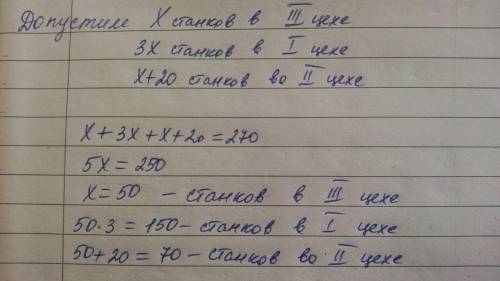 Допустим X станков в III цехе
3X станков в I цехе
X+20 станков во II цехе
X + 3X + X + 20 = 270
5X = 250
X = 50 - станков в III цехе
50·3 = 150 - станков в I цехе
50+20 = 70 - станков во II цехе